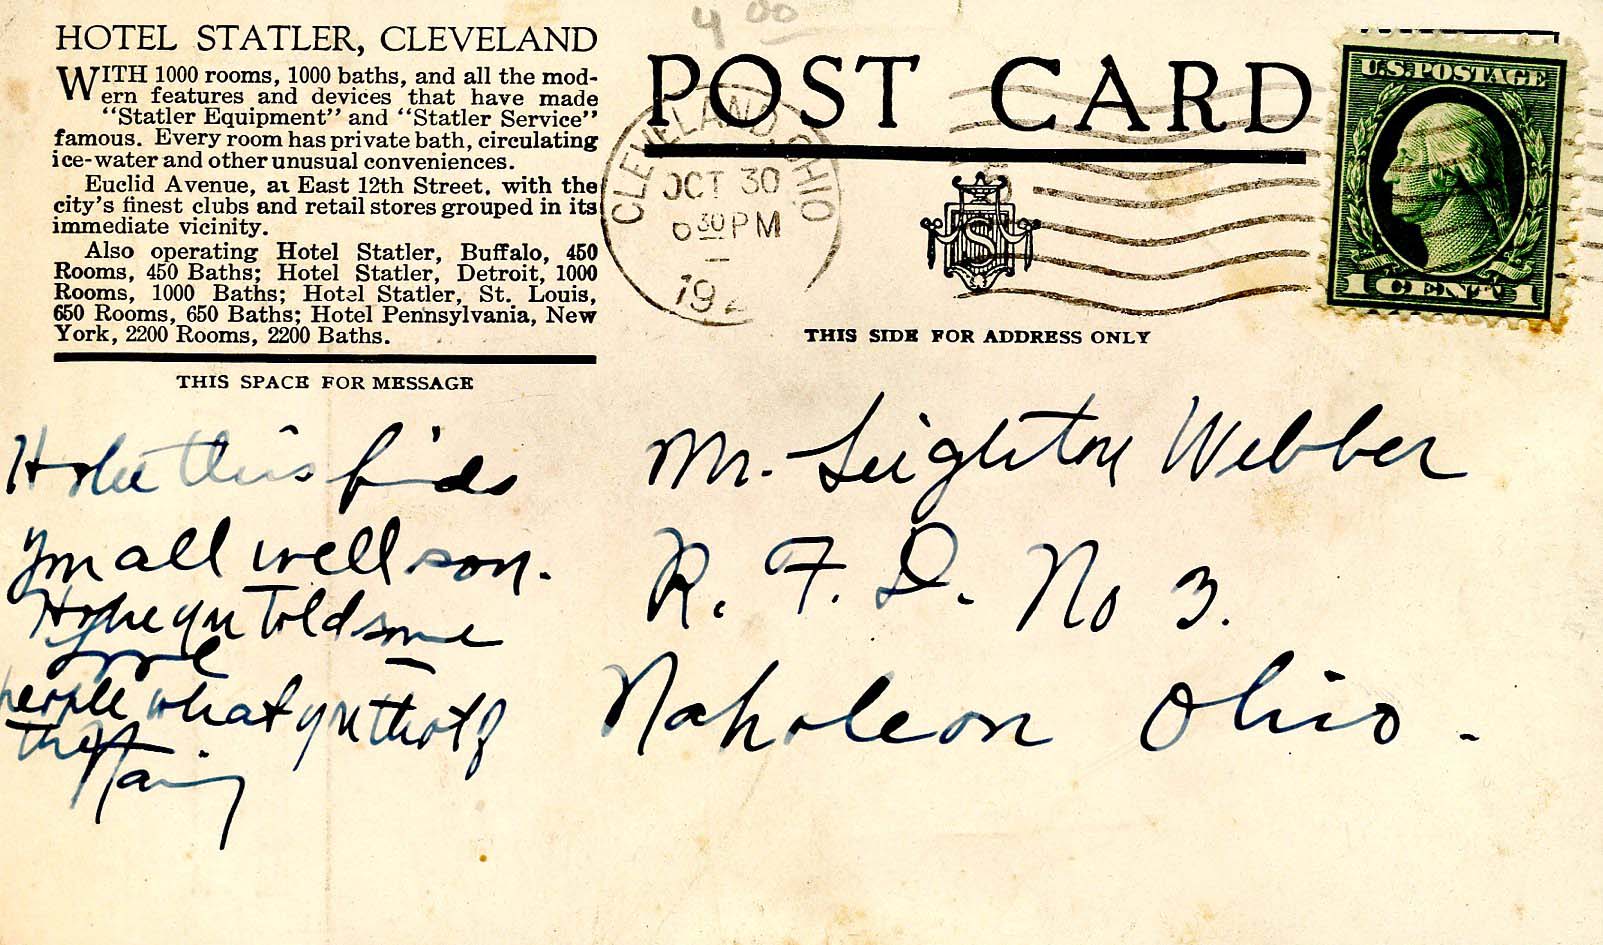 4 00
HOTEL STATLER, CLEVELAND
WITH 1000 rooms, 1000 baths, and all the mod-
ern features and devices that have made
"Statler Equipment" and "Statler Service"
famous. Every room has private bath, circulating
ice-water and other unusual conveniences.
Euclid Avenue, at East 12th Street, with the
city's finest clubs and retail stores grouped in its
immediate vicinity.
Also operating Hotel Statler, Buffalo, 450
Rooms, 450 Baths; Hotel Statler, Detroit, 1000
Rooms, 1000 Baths; Hotel Statler, St. Louis,
650 Rooms, 650 Baths; Hotel Pennsylvania, New
York, 2200 Rooms, 2200 Baths.
THIS SPACE FOR MESSAGE
Hope this finds
you all well son.
Hope you told some
people what you thot of
Harry
POST CARD
CLEVELAND, OHIO
OCT 30
30 PM
192
S
THIS SIDE FOR ADDRESS ONLY
U.S. POSTAGE
1 CENT 1
Mr. Leighton Webber
R. F. D. No 3.
Napoleon Ohio.